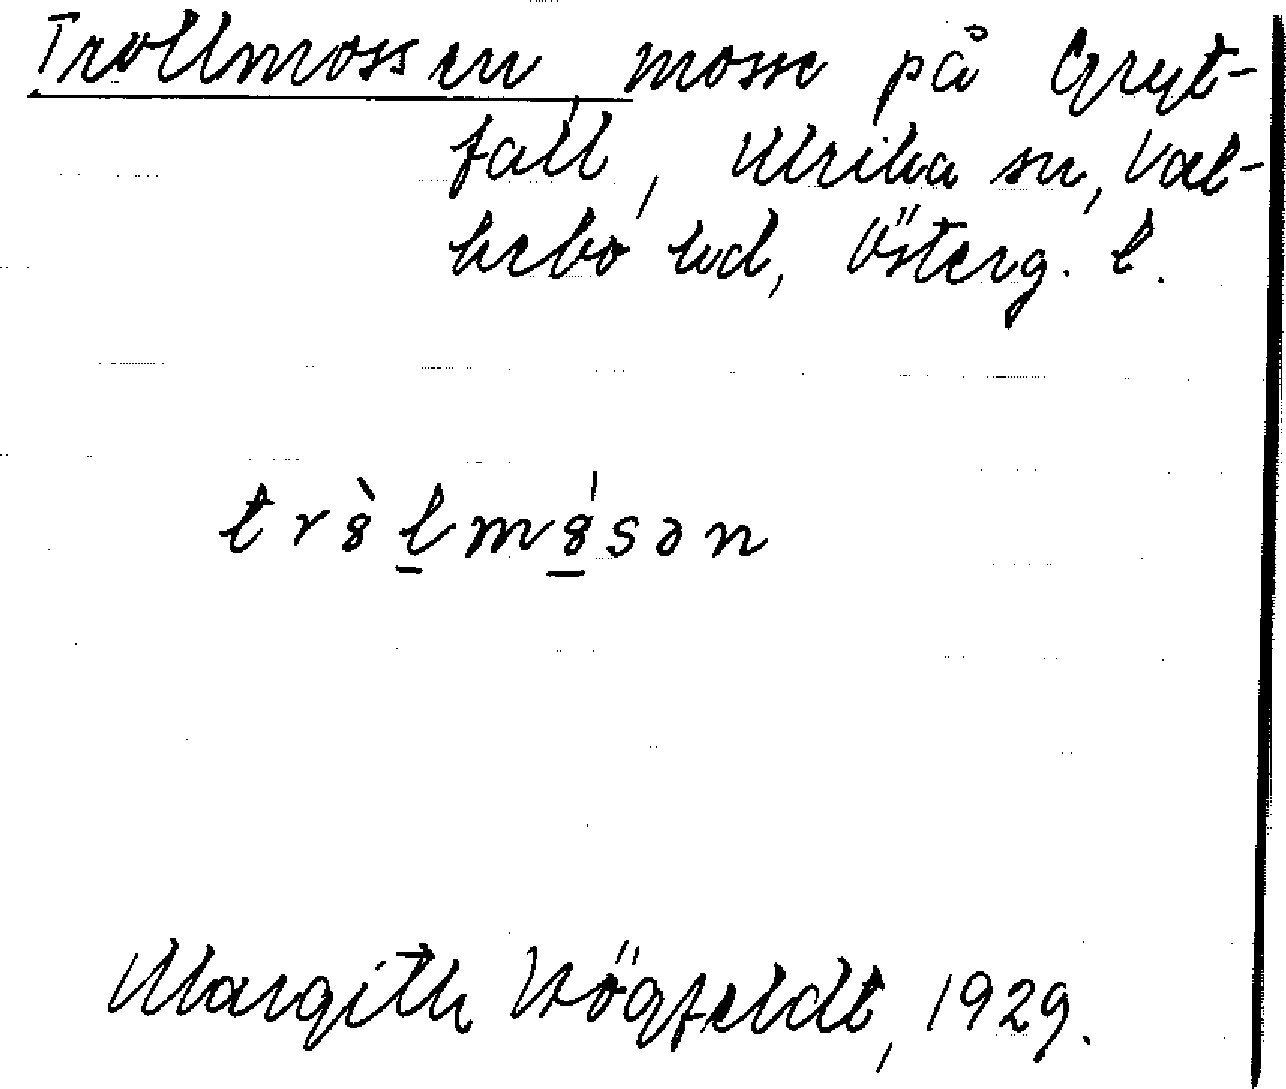 Trollmossen, mosse på Gryt-
fall, Ulrika sn, Val-
kebo hd, Österg. l.
tr8̀l̠m8̠́sən
Margith Högfeldt, 1929.